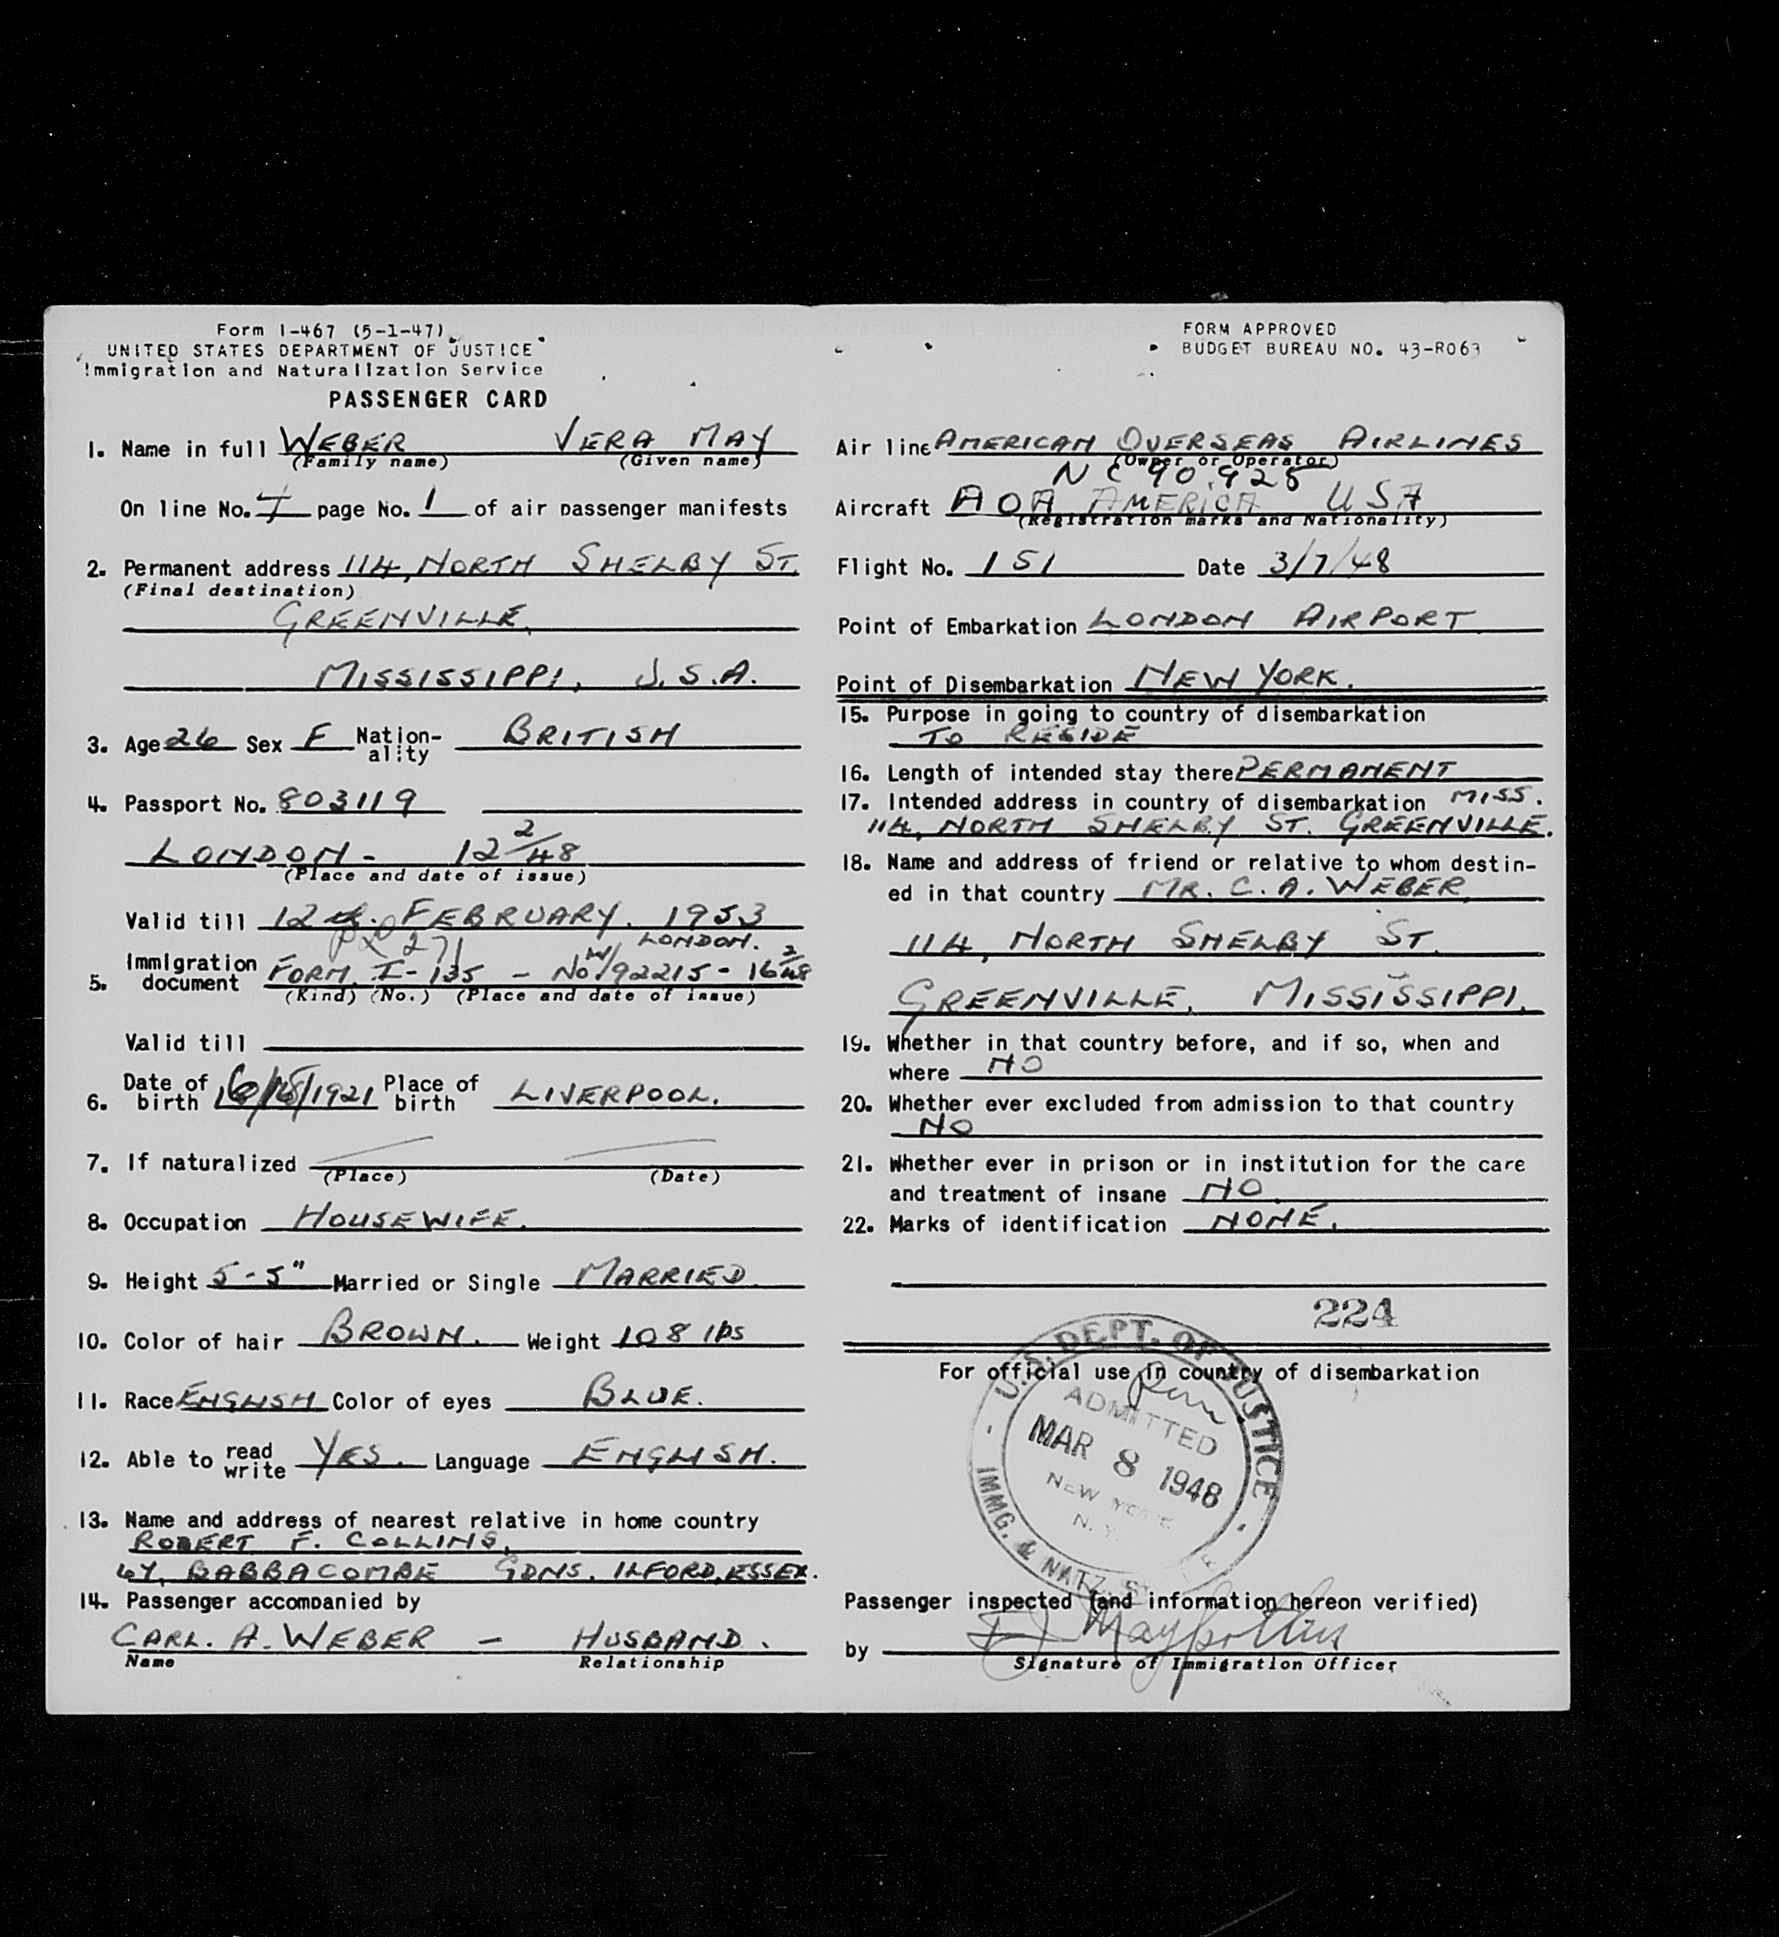 Form I-467 (5-1-47)
UNITED STATES DEPARTMENT OF JUSTICE
Immigration and Naturalization Service
PASSENGER CARD
1. Name in full WEBER VERA MAY
(Family name) (Given name)
On line No. page No. 1 of air passenger manifests
2. Permanent address 114, NORTH SHELBY ST.
(Final destination)
GREENVILLE.
MISSISSIPPI, U.S.A.
3. Age 26 Sex F Nation-ality BRITISH
4. Passport No. 803119
LONDON - 12 2/48
(Place and date of issue)
Valid till 12th. FEBRUARY. 1953
PL 271 LONDON.
5. Immigration document FORM I-135 - No 192215 - 16 2/48
(Kind) (No.) (Place and date of issue)
Valid till
6. Date of birth 1921 Place of birth LIVERPOOL.
7. If naturalized
(Place) (Date)
8. Occupation HOUSEWIFE.
9. Height 5-5" Married or Single MARRIED
10. Color of hair BROWN. Weight 108 lbs
11. Race ENGLISH Color of eyes BLUE.
12. Able to read write YES. Language ENGLISH.
13. Name and address of nearest relative in home country
ROBERT F. COLLINS,
BABBACOMBE GDNS. ILFORD, ESSEX.
14. Passenger accompanied by
CARL. A. WEBER - HUSBAND.
Name Relationship
FORM APPROVED
BUDGET BUREAU NO. 43-R063
Air line AMERICAN OVERSEAS AIRLINES
(Owner or Operator)
NC 90.925
Aircraft AOA AMERICA USA
(Registration marks and Nationality)
Flight No. 151 Date 3/7/48
Point of Embarkation LONDON AIRPORT
Point of Disembarkation NEW YORK.
15. Purpose in going to country of disembarkation
TO RESIDE
16. Length of intended stay there PERMANENT
17. Intended address in country of disembarkation MISS.
114, NORTH SHELBY ST. GREENVILLE.
18. Name and address of friend or relative to whom destin-
ed in that country MR. C. A. WEBER,
114, NORTH SHELBY ST.
GREENVILLE, MISSISSIPPI.
19. Whether in that country before, and if so, when and
where NO
20. Whether ever excluded from admission to that country
NO
21. Whether ever in prison or in institution for the care
and treatment of insane NO.
22. Marks of identification NONE.
224
For official use in country of disembarkation
U.S. DEPT. OF JUSTICE
ADMITTED
MAR 8 1948
NEW YORK
N. Y.
IMMG. & NATZ.
Passenger inspected (and information hereon verified)
by
Signature of Immigration Officer